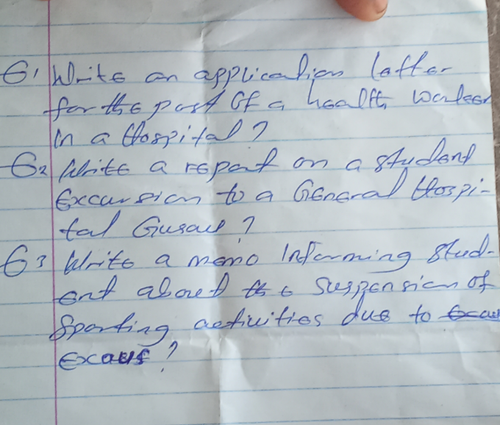 Q1 Write an application latter
for the post of a health worker
in a Hospital?
Q2 Write a report on a student
Excursion to a General Hospi-
tal Gusau?
Q3 Write a memo Informing stud-
ent about the Suspension of
Sporting activities due to
Exams?